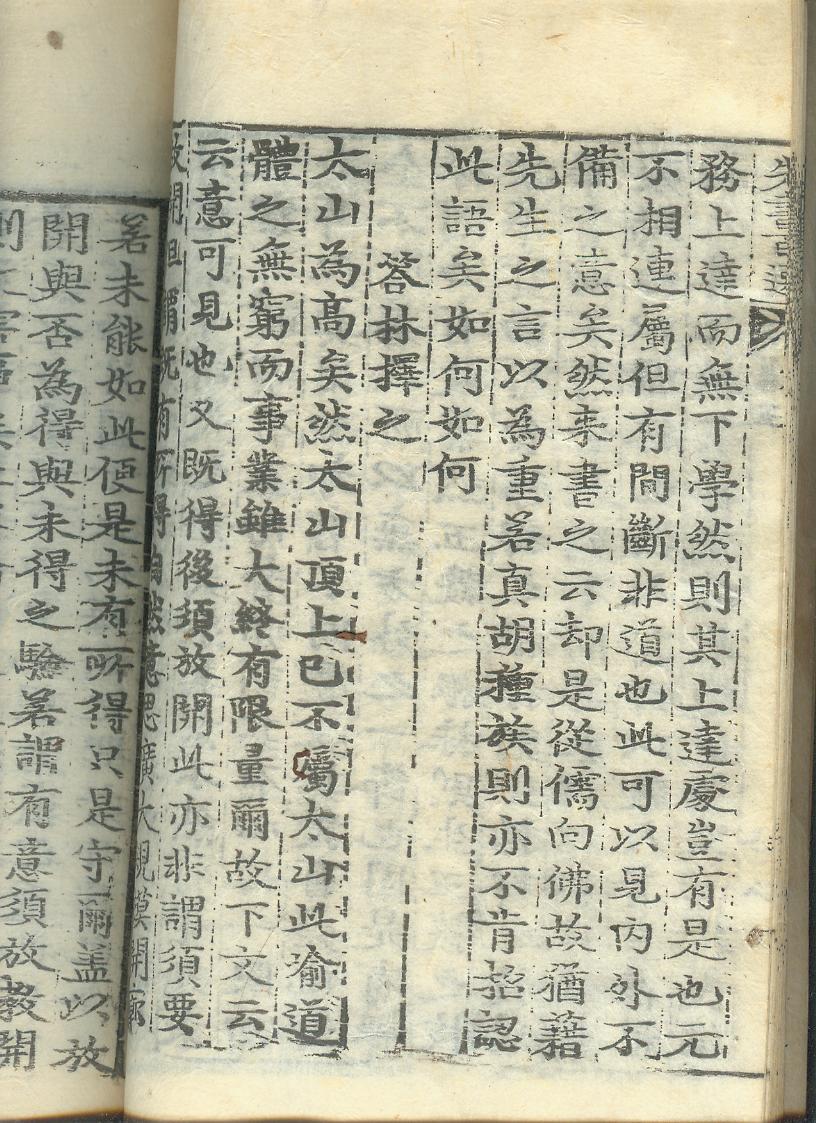 務上達而無下學然則其上達處豈有是也元
不相連屬但有間斷非道也此可以見內外不
備之意矣然来書之云却是從儒向佛故猶藉
先生之言以為重若真胡種族則亦不肯招認
此語矣如何如何
答林擇之
太山為高矣然太山頂上已不屬太山此喻道
體之無窮而事業雖大終有限量爾故下文云
云意可見也又既得後須放開此亦非謂須要
放開但謂既有所得自然意思廣大規模開廓
若未能如此便是未有所得只是守爾盖以放
開與否為得與未得之驗若謂有意須放敎開
則